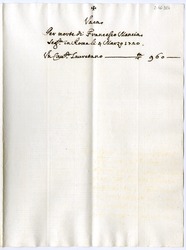 Vacan
Per morte di Francesco Mancin
Seg.ta in Roma li 4 Marzo 1720.
Un Cau.to Lauretano 960